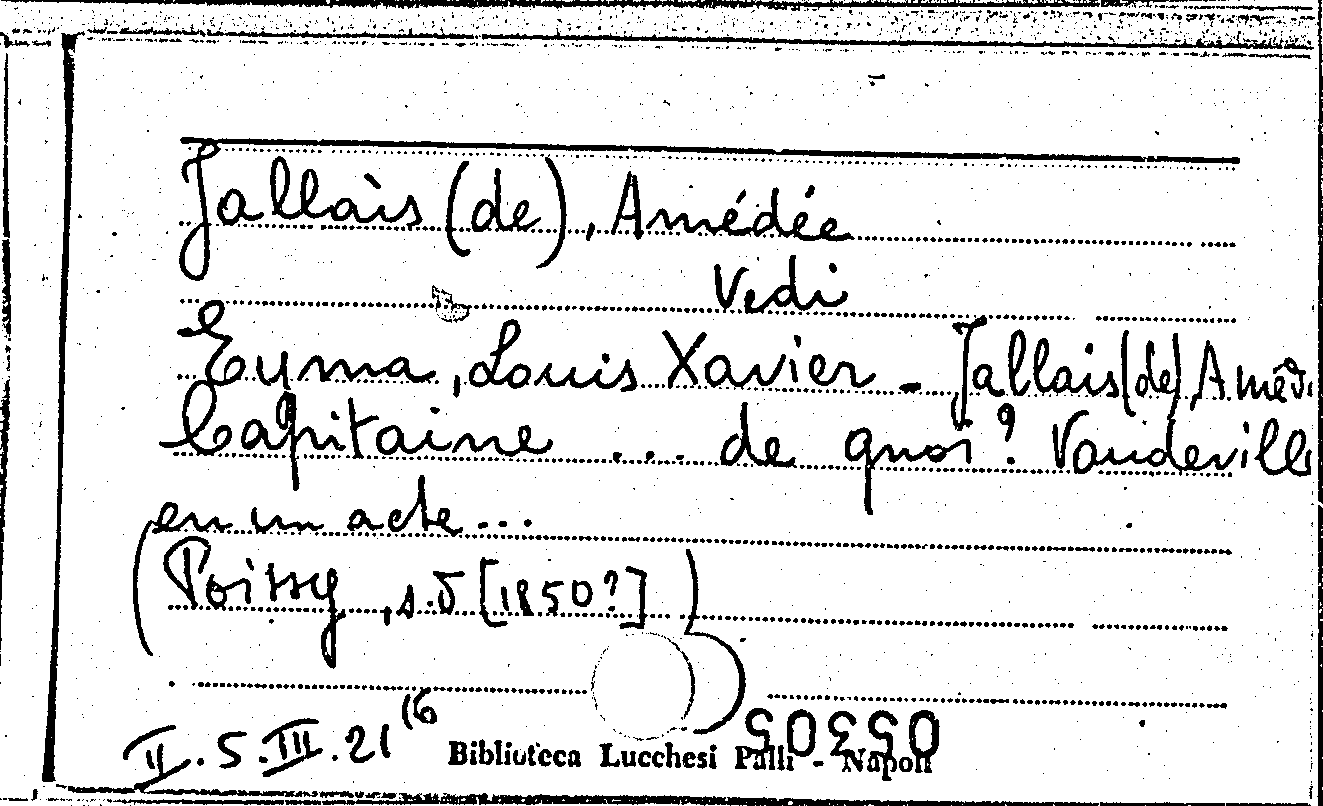 Jallais (de), Amédée
Vedi
Eyma, Louis Xavier - Jallais (de), Améd.
Capitaine ... de quoi? Vaudeville
en un acte...
(Poissy, s.d [1850?])
II.5.III.21 (6
Biblioteca Lucchesi Palli - Napoli